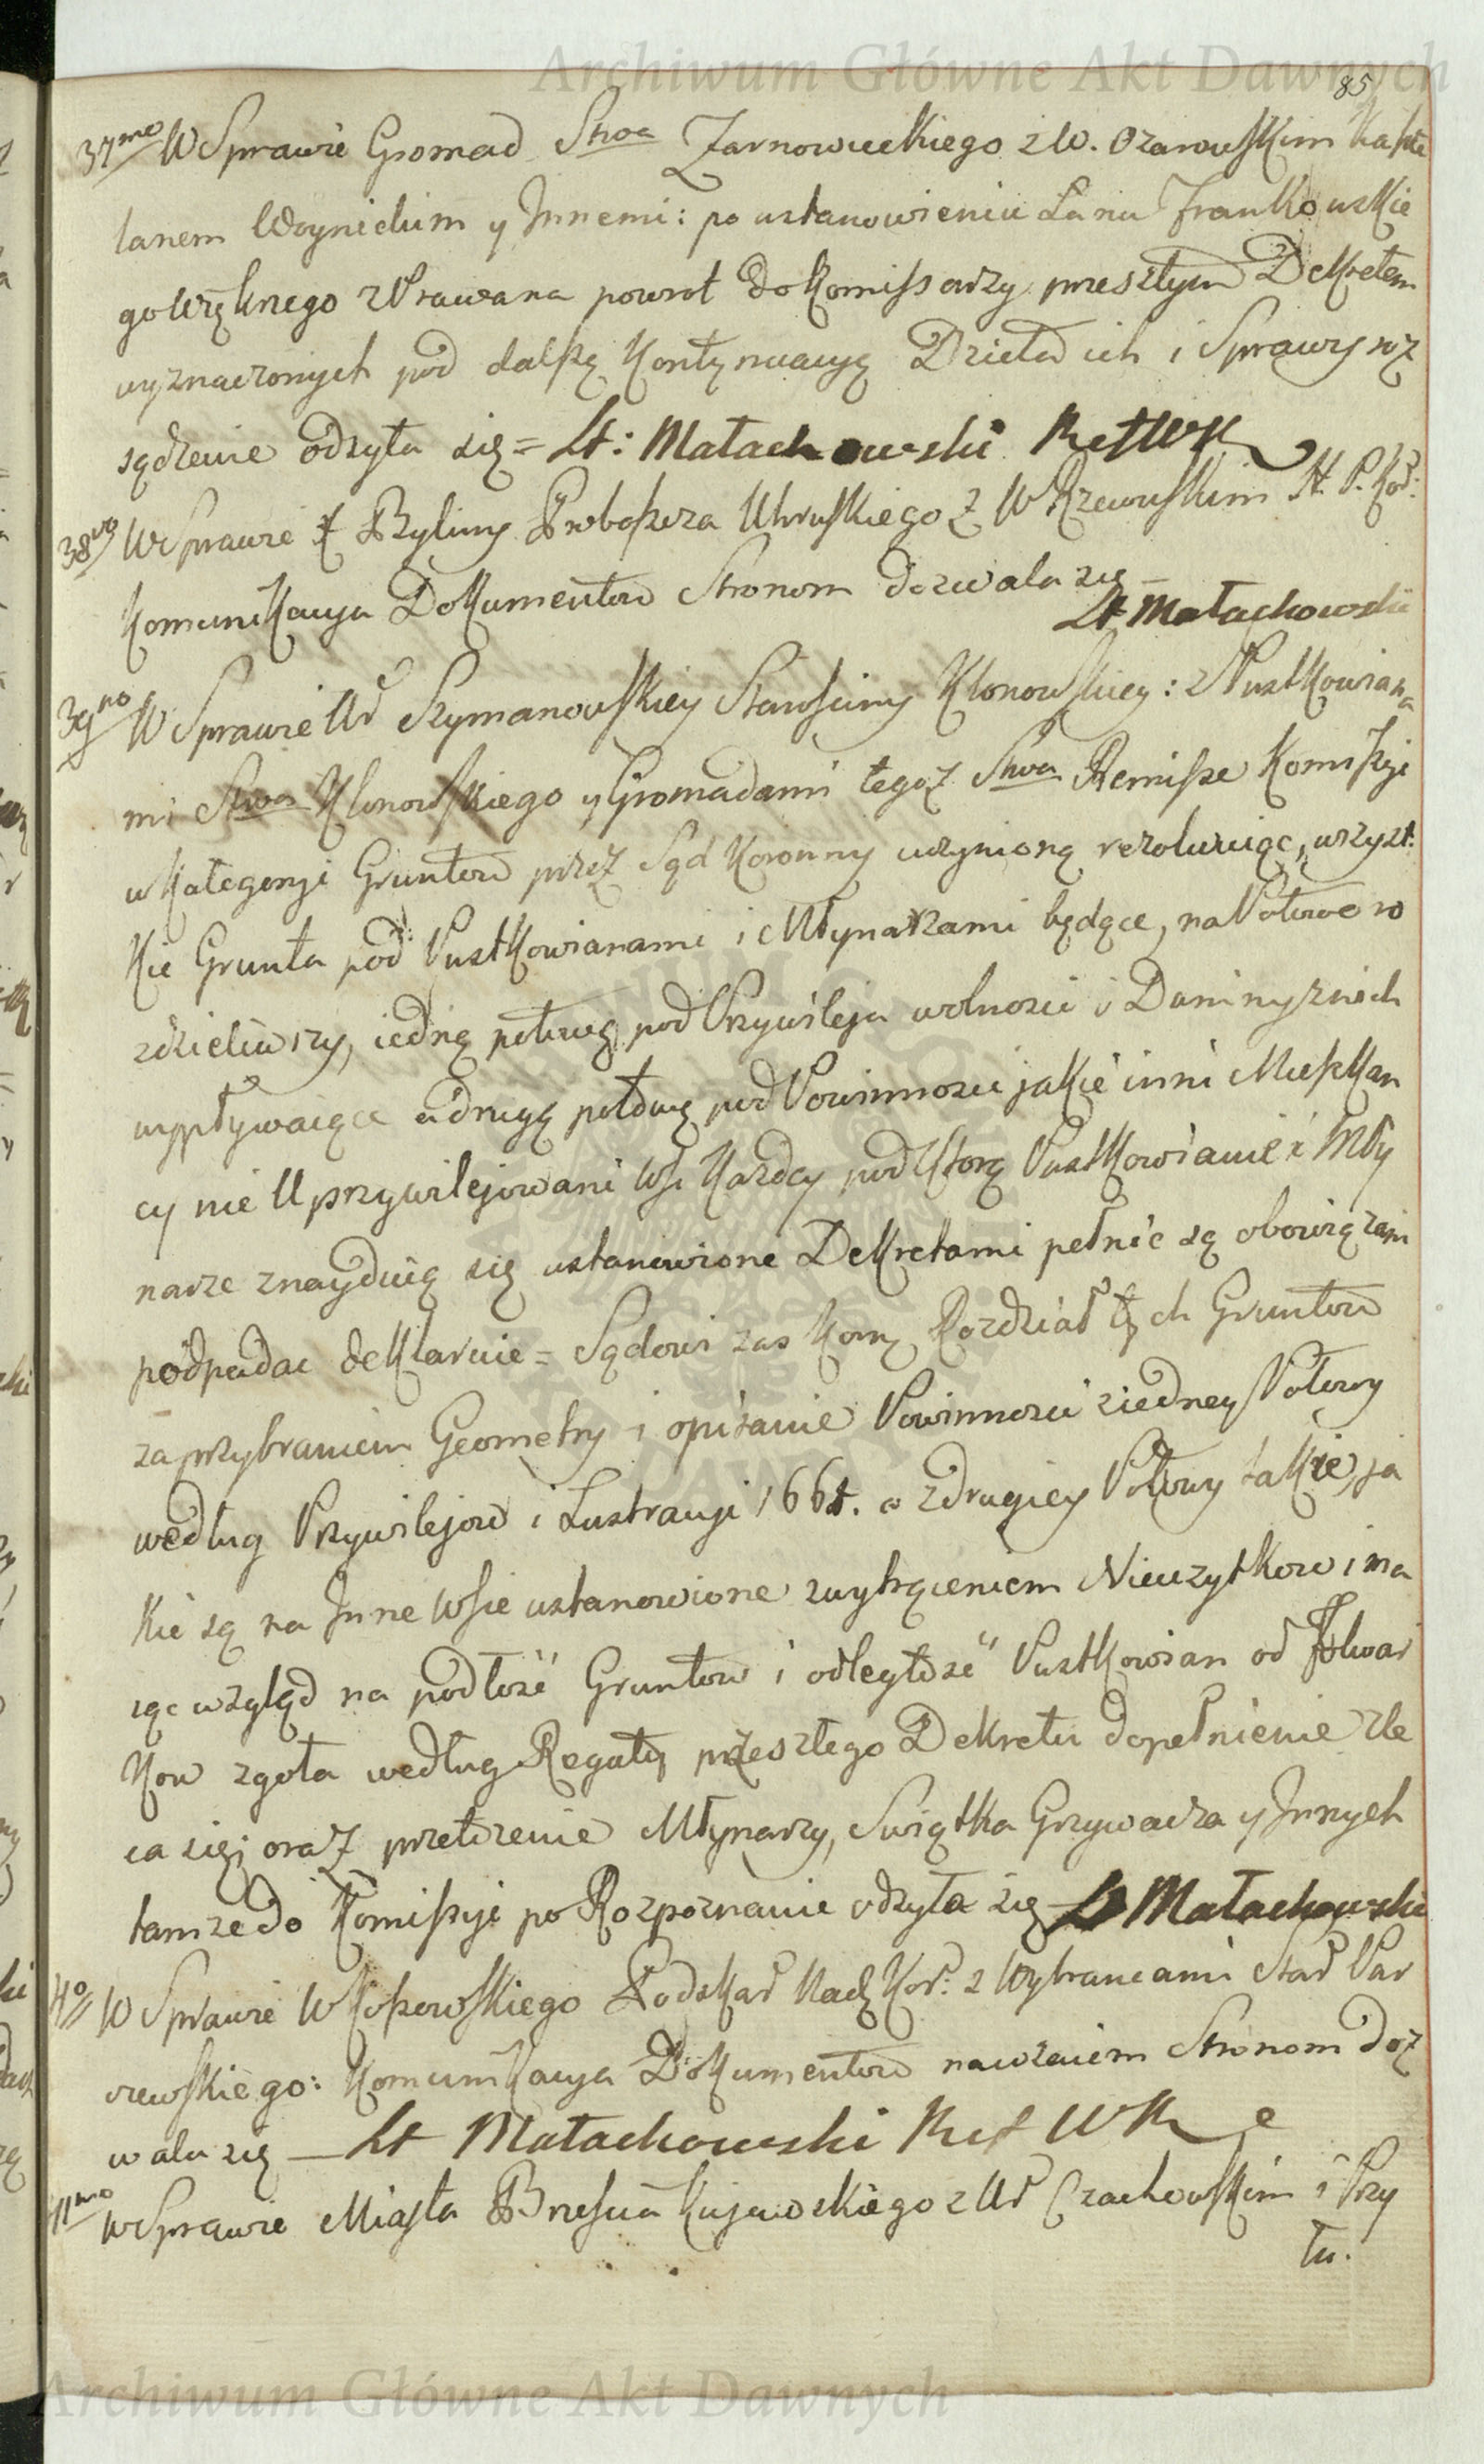 Archiwum Główne Akt Dawnych
85
37mo W Sprawie Gromad Stwa Zarnowieckiego z W. Ozarowskim Kaszte
lanem Woynickim y Jnnemi: po ustanowieniu Lanu Frankowskie
go powrot do Komissarzy przeszłym Dekretem
wyznaczonych pod dalszą Kontynuacyą Dzieła ich i Sprawy roz
sądzenie odsyła się = St: Małachowski RefWK
38vo W Sprawie X Byliny Proboszcza Uhruskiego z W Rzewuskim H. P. Kor:
Komunikacya Dokumentow Stronom dozwala się –
St Małachowski
39no W Sprawie Ur Szymanowskiey Starosciny Klonowskiey: z Pustkowiana
mi Stwa Klonowskiego y Gromadami tegoz Stwa Remisse Komissyi
w Kategoryi Gruntow przez Sąd Koronny uczynioną rezolwuiąc, wszyst:
Kie Grunta pod Pustkowianami i Młynarzami będące, na Połowę ro
zdzieliwszy, iedną połowę pod Przywileja wolnosci i Daniny z nich
wypływaiące a drugą połowę pod Powinnosci jakie inni Mieszkan
cy nie Uprzywilejowani Wsi Kazdey pod Ktorą Pustkowianie i Mły
narze znayduią się ustanowione Dekretami pełnic są obowiązani
podpadac deklaruie = Sądowi zas Kom Rozdział tych Gruntow
za przybraniem Geometry i opisanie Powinnosci z iedney Połowy
według Przywilejow i Lustracyi 1661. a z drugiey Połowy takie, ja
Kie są na Jnne Wsie ustanowione z wytrąceniem Nieuzytkow i ma
iąc wzgląd na podłość Gruntow i odległość Pustkowian od Folwar
Kow zgoła według Reguły przeszłego Dekretu dopełnienie zle
ca się; oraz przełozenie Młynarzy, Swiątka Grzywacza y Jnnych
tamze do Komissyi po Rozpoznanie odsyła się – St Małachowski
40 W Sprawie W Kossowskiego Podskar Nadz Kor: z Wybrancami Star Par
czewskiego: Komunikacya Dokumentow nawzaiem Stronom doz
wala się — St Małachowski Ref WK
41mo W Sprawie Miasta Brzescia Kujawskiego z Ur Czachowskim i Przy
tu.
Archiwum Główne Akt Dawnych